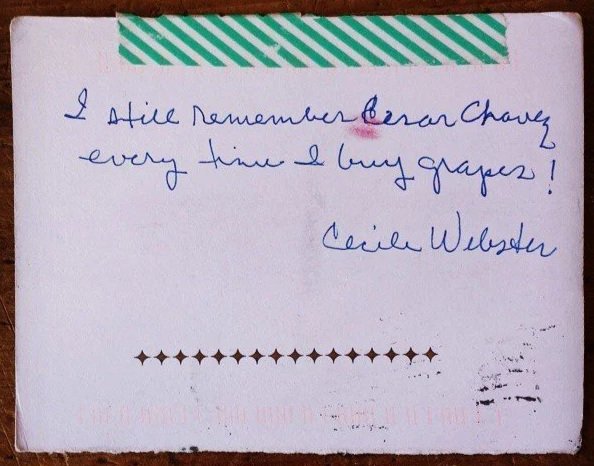 I still remember Cesar Chavez
every time I buy grapes!
Cecile Webster